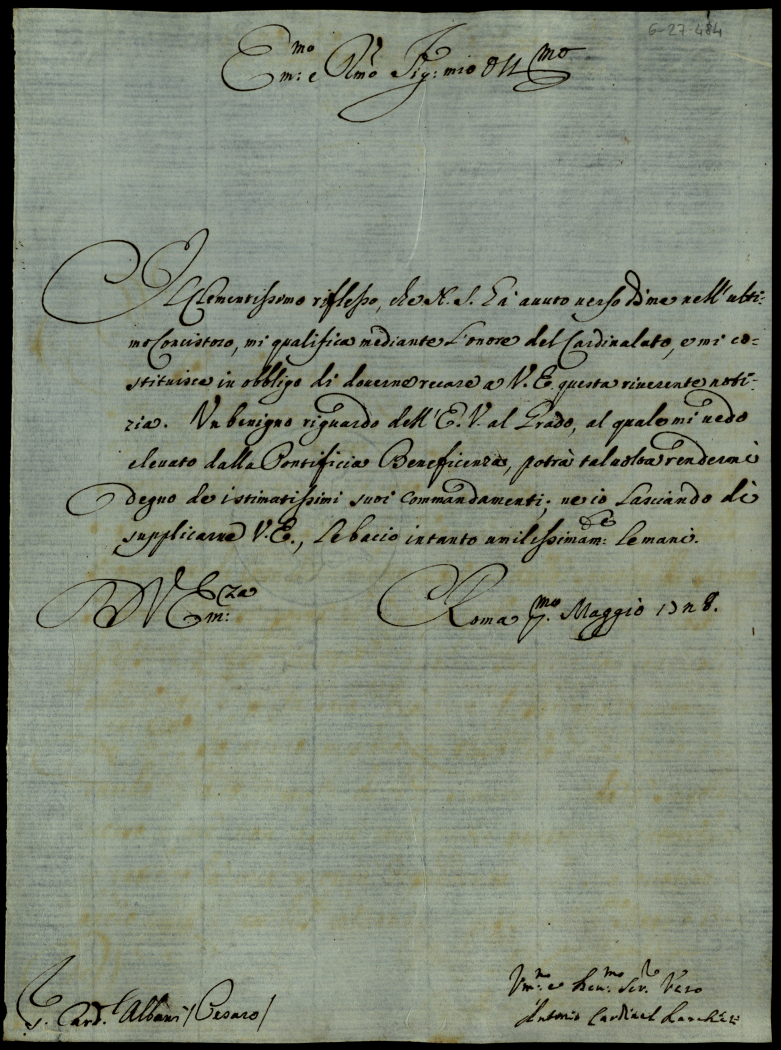 6-27-484
Em:mo e Rmo Sig: mio Oss:mo
Il Clementissimo riflesso, che N. S. hà avuto verso di me nell'ulti-
mo Concistoro, mi qualifica mediante l'onore del Cardinalato, e mi co-
stituisce in obbligo di dover recare a V. E. questa riverente noti-
zia. Un benigno riguardo dell'E. V. al Grado, al quale mi vedo
elevato dalla Pontificia Beneficenza, potrà talvolta rendermi
degno de istimatissimi suoi Commandamenti; ne io lasciando di
supplicarne V. E., le bacio intanto umilissimam:te le mani.
D V Em:za
Roma p.mo Maggio 1728.
S. Card. Albani / Pesaro /
Um:mo e Seru:mo Ser.re Vero
Antonio Cardinal